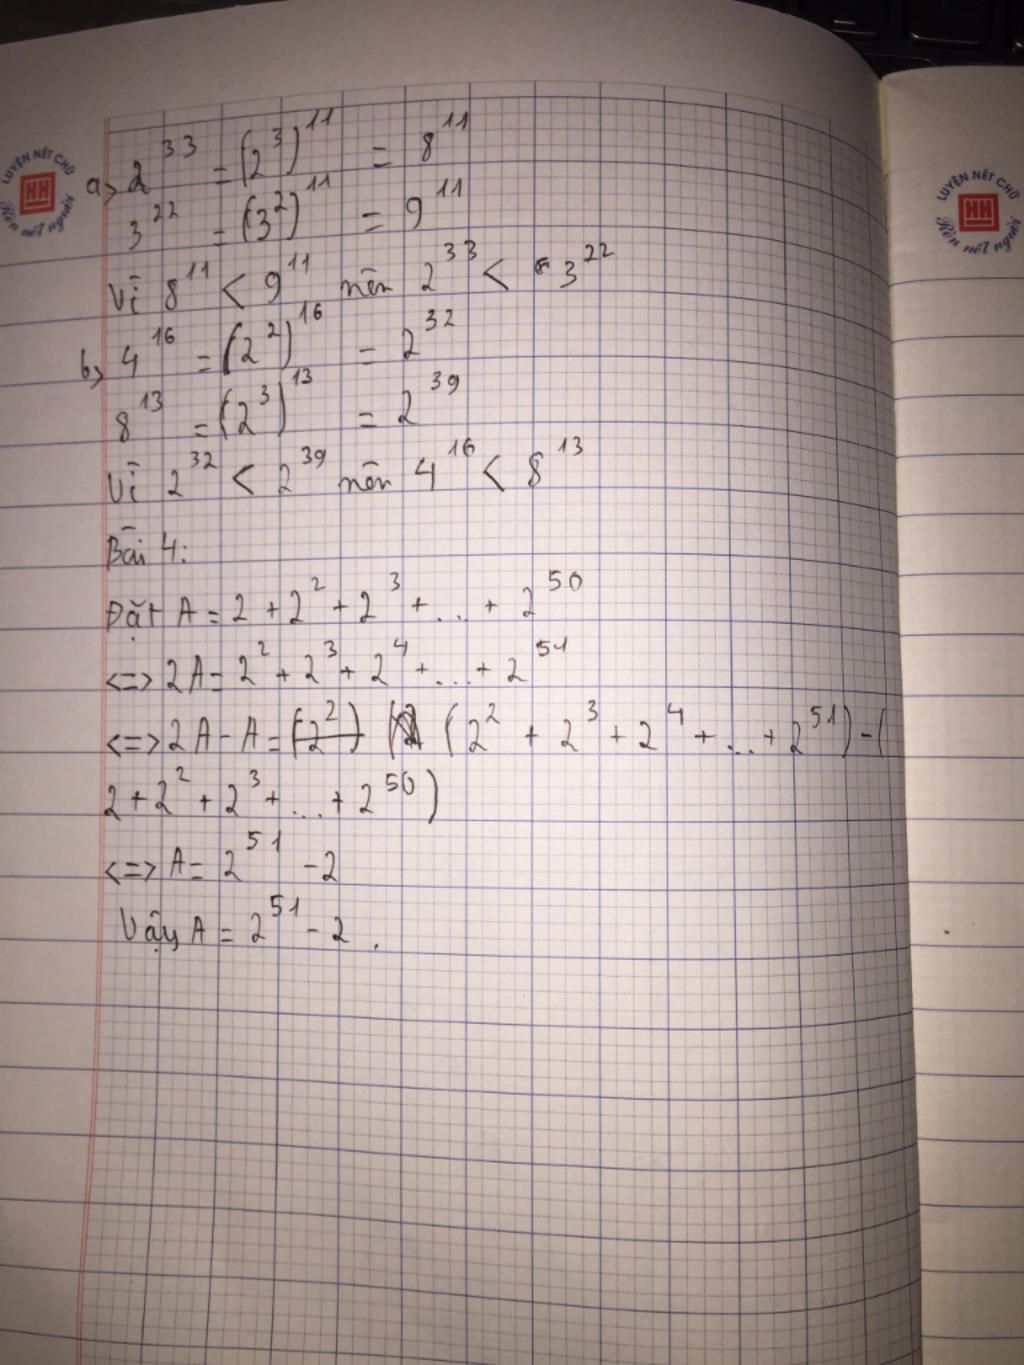 LUYỆN NÉT CHỮ
HH
Rèn nết người
a, 2^33 = (2^3)^11 = 8^11
3^22 = (3^2)^11 = 9^11
Vì 8^11 < 9^11 nên 2^33 < 3^22
b, 4^16 = (2^2)^16 = 2^32
8^13 = (2^3)^13 = 2^39
Vì 2^32 < 2^39 nên 4^16 < 8^13
Bài 4:
Đặt A = 2 + 2^2 + 2^3 + ... + 2^50
<=> 2A = 2^2 + 2^3 + 2^4 + ... + 2^51
<=> 2A - A = (2^2) (2 (2^2 + 2^3 + 2^4 + ... + 2^51) - (
2 + 2^2 + 2^3 + ... + 2^50)
<=> A = 2^51 - 2
Vậy A = 2^51 - 2 .
LUYỆN NÉT CHỮ
HH
Rèn nết người